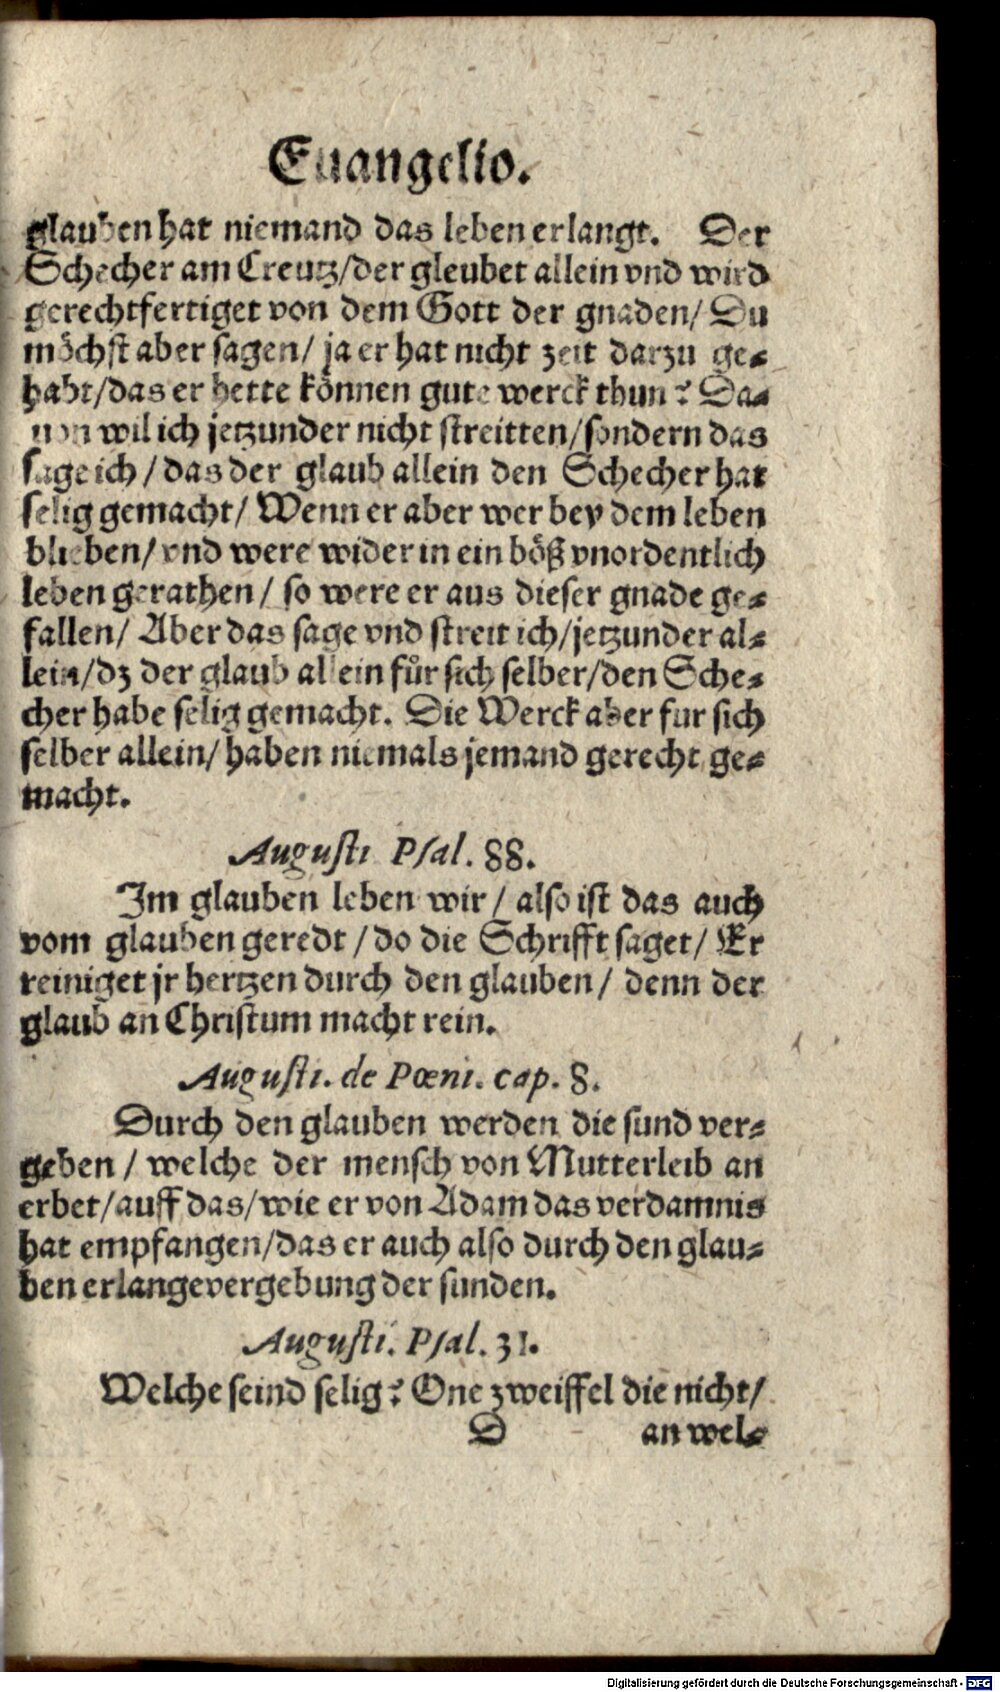 Euangelio.
glauben hat niemand das leben erlangt. Der
Schecher am Creutz/der gleubet allein vnd wird
gerechtfertiget von dem Gott der gnaden/ Du
möchst aber sagen/ ja er hat nicht zeit darzu ge-
habt/das er hette können gute werck thun? Da-
uon wil ich jetzunder nicht streitten/sondern das
sage ich / das der glaub allein den Schecher hat
selig gemacht/ Wenn er aber wer bey dem leben
blieben/ vnd were wider in ein böß vnordentlich
leben gerathen / so were er aus dieser gnade ge-
fallen/ Aber das sage vnd streit ich/jetzunder al-
lein/dz der glaub allein für sich selber/den Sche-
cher habe selig gemacht. Die Werck aber fur sich
selber allein/ haben niemals jemand gerecht ge-
macht.
Augusti Psal. 88.
Im glauben leben wir / also ist das auch
vom glauben geredt / do die Schrifft saget/ Er
reiniget jr hertzen durch den glauben / denn der
glaub an Christum macht rein.
Augusti. de Pœni. cap. 8.
Durch den glauben werden die sund ver-
geben / welche der mensch von Mutterleib an
erbet/auff das/wie er von Adam das verdamnis
hat empfangen/das er auch also durch den glau-
ben erlange vergebung der sunden.
Augusti. Psal. 31.
Welche seind selig? One zweiffel die nicht/
D an wel-
Digitalisierung gefördert durch die Deutsche Forschungsgemeinschaft - DFG